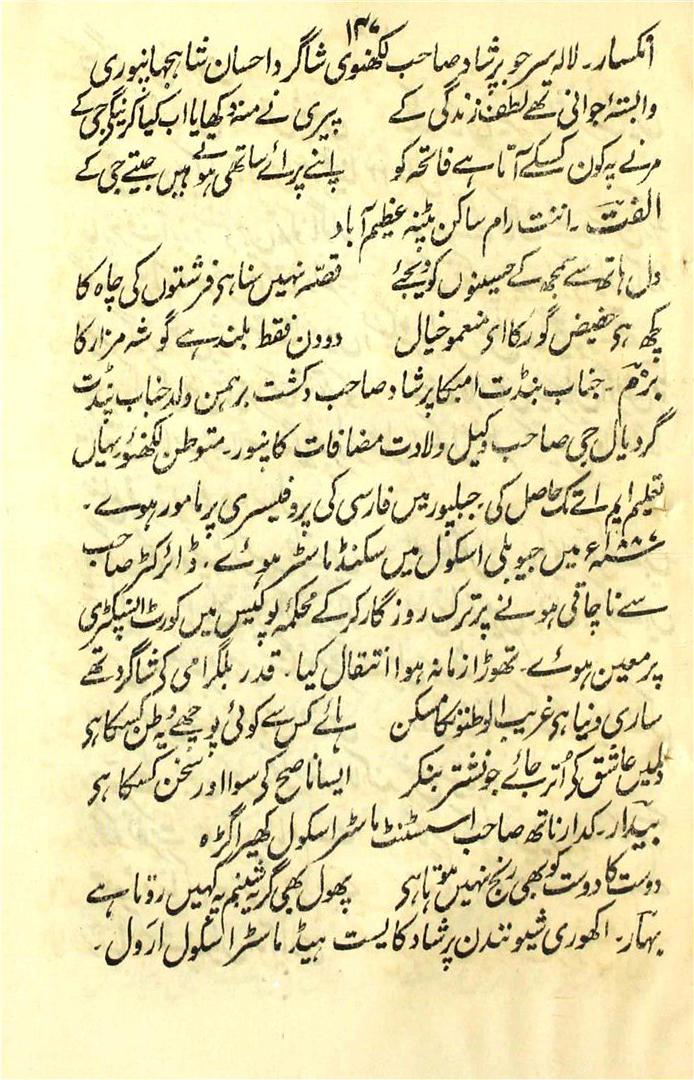 ۱۴۷
انکسار۔ لالہ سرجو پرشاد صاحب لکھنوی شاگرد احسان شاہجہانپوری
وابستۂ جوانی تھے لطف زندگی کے پیری نے منہ دکھایا اب کیا کرینگی جی کے
مرنے پہ کون کسکے آتا ہے فاتحہ کو اپنے پرائے ساتھی ہوتے ہیں جیتے جی کے
الفت۔ اننت رام ساکن پٹنہ عظیم آباد
دل ہاتھ سے سمجھ کے حسینوں کو دیجئے قصہ نہیں سنا ہی فرشتوں کی چاہ کا
کچھ ہی حضیض گور کا ای منعمو خیال دو دن فقط بلند ہے گوشہ مزار کا
بزم۔ جناب پنڈت امبکا پرشاد صاحب دکشت برہمن ولد جناب پنڈت
گردیال جی صاحب وکیل ولادت مضافات کانپور۔ متوطن لکھنؤ یہاں
تعلیم ایم اے تک حاصل کی جبلپور میں فارسی کی پروفیسری پر مامور ہوے۔
۱۸۸۷ء میں جیوبلی اسکول میں سکنڈ ماسٹر ہوئے۔ ڈائرکٹر صاحب
سے ناچاقی ہونے پر ترک روزگار کر کے محکمۂ پولیس میں کورٹ انسپکٹری
پر معین ہوئے۔ تھوڑا زمانہ ہوا انتقال کیا۔ قدر بلگرامی کی شاگرد تھے
ساری دنیا ہی غریب الوطنو کا مسکن ہائے کس سے کوئی پوچھے یہ وطن کسکا ہی
دلمیں عاشق کی اُتر جائے جو نشتر بنکر ایسا ناصح کی سوا اور سخن کسکا ہی
بیدار۔ کدار ناتھ صاحب اسسٹنٹ ماسٹر اسکول کھیراگڑہ
دوست کا دوست کو بھی رنج نہیں ہوتا ہی پھول بھی گریۂ شبنم پہ کہیں روتا ہے
بہار۔ اکھوری شیو نندن پرشاد کایست ہیڈ ماسٹر اسکول ارول۔